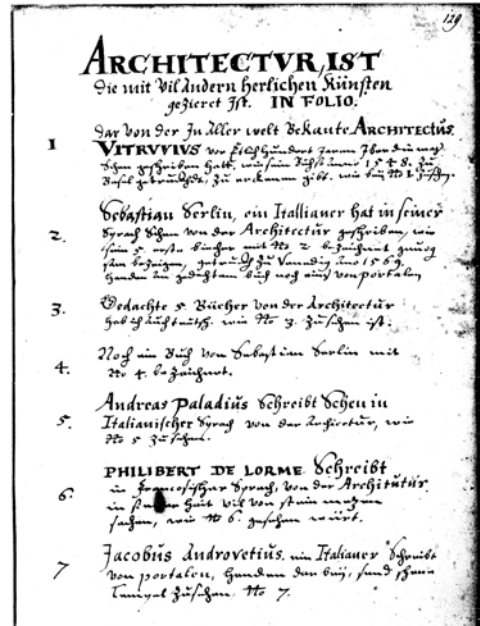 129
ARCHITECTVR, IST
die mit Vil Andern herlichen Künsten
gezieret Jst. IN FOLIO.
dar Von der Jn Aller welt Bekante ARCHITECTUS.
1 VITRVVIVS vor Hundert Jaren
geschriben hatt, wie sein Buch Anno 1548. Zu
Basel getruckht, Zu erkennen gibt. wie bey No 1 Zusehen.
Sebastian Serlin, ein Jtallianer hat in seiner
2. Sprach Schen von der Architectur geschriben, wie
sein 5. erste biecher mit No 2 bezeichnet genueg
sam bezeigen, getruckht Zu Venedig Anno 1569.
in gedachtem buch noch eins von portalen
3. Gedachte 5. Bücher von der Architectur
hab ich Auch teutsch. wie No 3. Zusehen ist.
Noch ein Buch von Sebastian Serlin mit
4. No 4. bezaichnet.
Andreas Paladius Schreibt Schen in
5. Jtalianischer Sprach von der Archicetur, wie
No 5 Zusehen.
PHILIBERT DE LORME. Schreibt
6. in francosischer Sprach, von der Architutur.
in Zeit vil von stain metzen
sachen, wie No 6. gesehen würt.
7 Jacobus Androvetius. ein Jtalianer Schreibt
von portalen, sand schene
Tempel Zusehen, No 7.